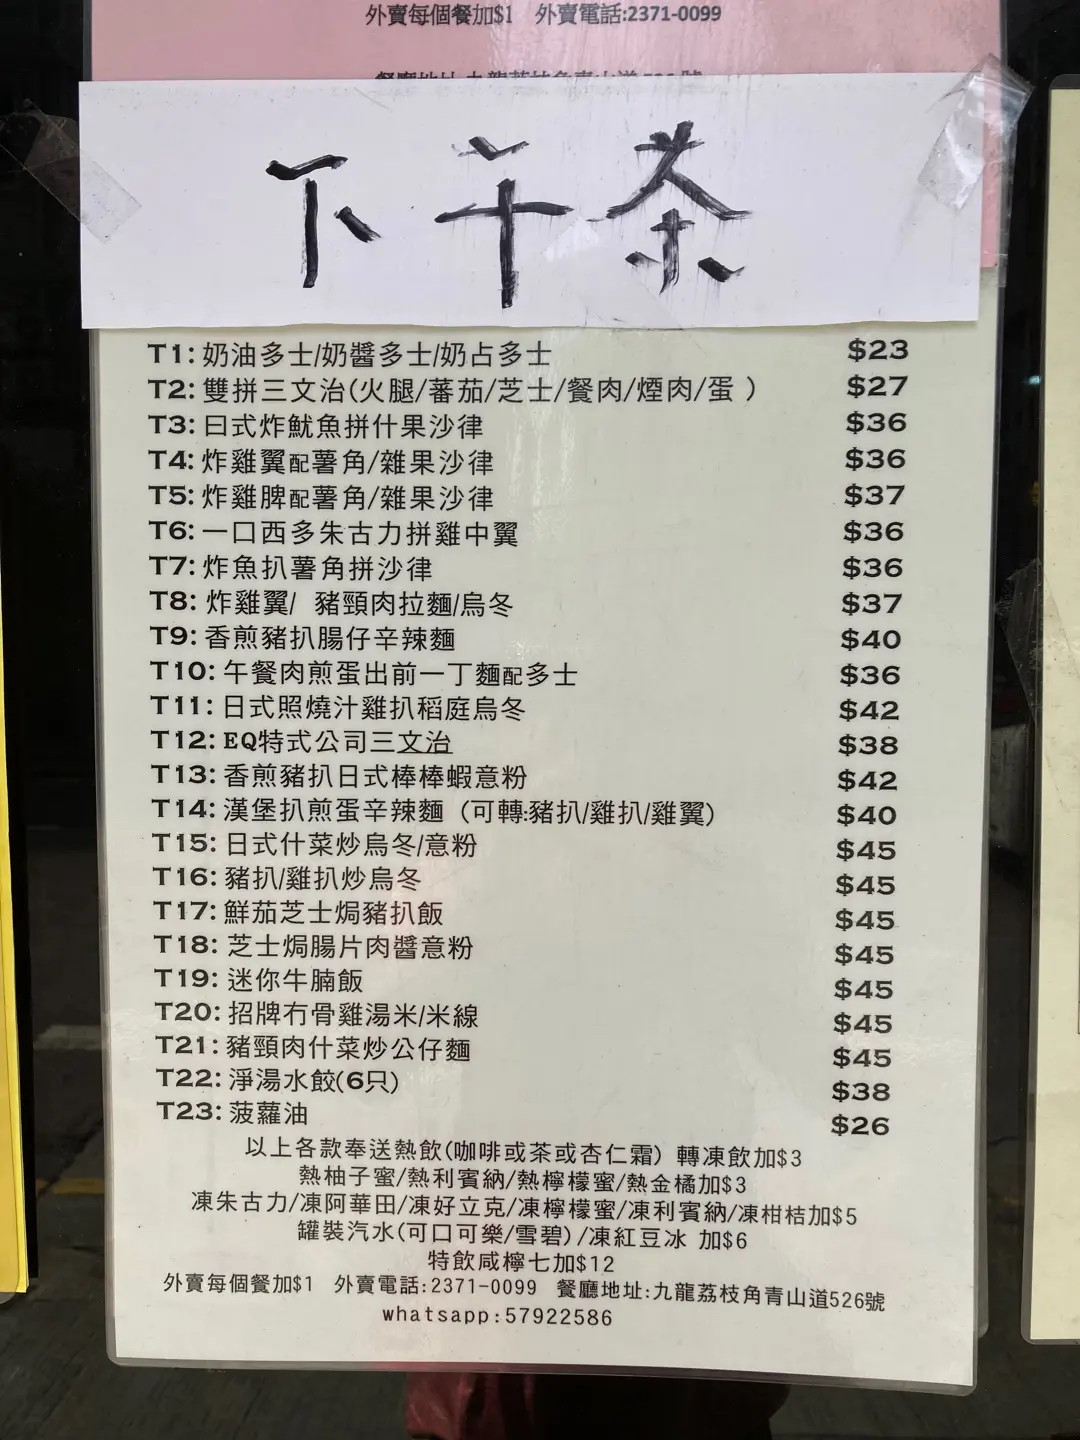 外賣每個餐加$1 外賣電話:2371-0099
下午茶
T1: 奶油多士/奶醬多士/奶占多士 $23
T2: 雙拼三文治(火腿/蕃茄/芝士/餐肉/煙肉/蛋 ) $27
T3: 日式炸魷魚拼什果沙律 $36
T4: 炸雞翼配薯角/雜果沙律 $36
T5: 炸雞脾配薯角/雜果沙律 $37
T6: 一口西多朱古力拼雞中翼 $36
T7: 炸魚扒薯角拼沙律 $36
T8: 炸雞翼/ 豬頸肉拉麵/烏冬 $37
T9: 香煎豬扒腸仔辛辣麵 $40
T10: 午餐肉煎蛋出前一丁麵配多士 $36
T11: 日式照燒汁雞扒稻庭烏冬 $42
T12: EQ特式公司三文治 $38
T13: 香煎豬扒日式棒棒蝦意粉 $42
T14: 漢堡扒煎蛋辛辣麵 (可轉:豬扒/雞扒/雞翼) $40
T15: 日式什菜炒烏冬/意粉 $45
T16: 豬扒/雞扒炒烏冬 $45
T17: 鮮茄芝士焗豬扒飯 $45
T18: 芝士焗腸片肉醬意粉 $45
T19: 迷你牛腩飯 $45
T20: 招牌冇骨雞湯米/米線 $45
T21: 豬頸肉什菜炒公仔麵 $45
T22: 淨湯水餃(6只) $38
T23: 菠蘿油 $26
以上各款奉送熱飲(咖啡或茶或杏仁霜) 轉凍飲加$3
熱柚子蜜/熱利賓納/熱檸檬蜜/熱金橘加$3
凍朱古力/凍阿華田/凍好立克/凍檸檬蜜/凍利賓納/凍柑桔加$5
罐裝汽水(可口可樂/雪碧)/凍紅豆冰 加$6
特飲咸檸七加$12
外賣每個餐加$1 外賣電話:2371-0099 餐廳地址:九龍荔枝角青山道526號
whatsapp:57922586